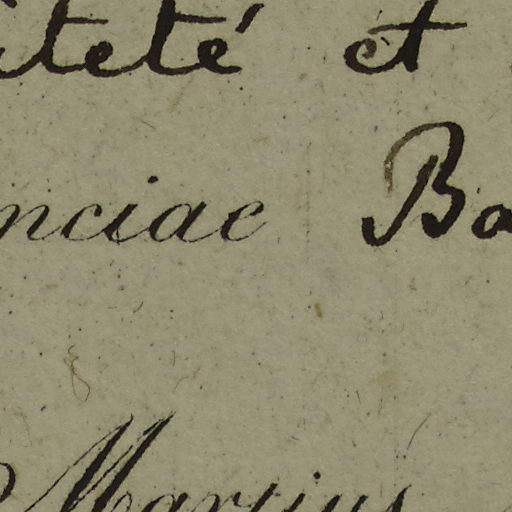 iteté et
nciae Ba
Martius